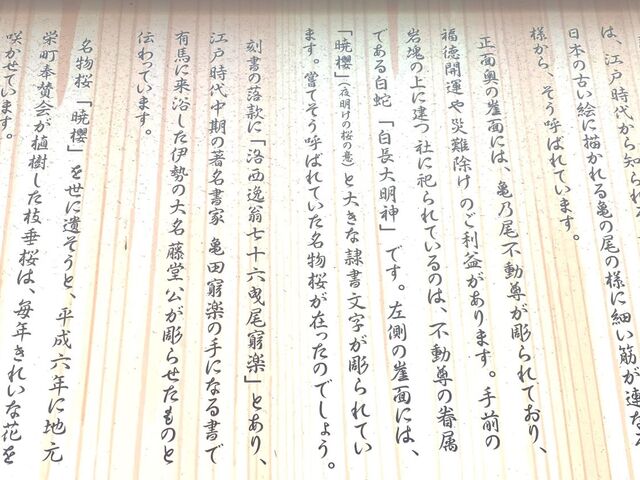 は、江戸時代から知られ
日本の古い絵に描かれる亀の尾の様に細い筋が連な
様から、そう呼ばれています。
正面奥の崖面には、亀乃尾不動尊が彫られており、
福徳開運や災難除けのご利益があります。手前の
岩塊の上に建つ社に祀られているのは、不動尊の眷属
である白蛇「白長大明神」です。左側の崖面には、
「暁櫻」(夜明けの桜の意)と大きな隷書文字が彫られてい
ます。嘗てそう呼ばれていた名物桜が在ったのでしょう。
刻書の落款に「洛西逸翁七十六曳尾窮楽」とあり、
江戸時代中期の著名書家 亀田窮楽の手になる書で
有馬に来浴した伊勢の大名 藤堂公が彫らせたものと
伝わっています。
名物桜「暁櫻」を世に遺そうと、平成六年に地元
栄町奉賛会が植樹した枝垂桜は、毎年きれいな花を
咲かせています。